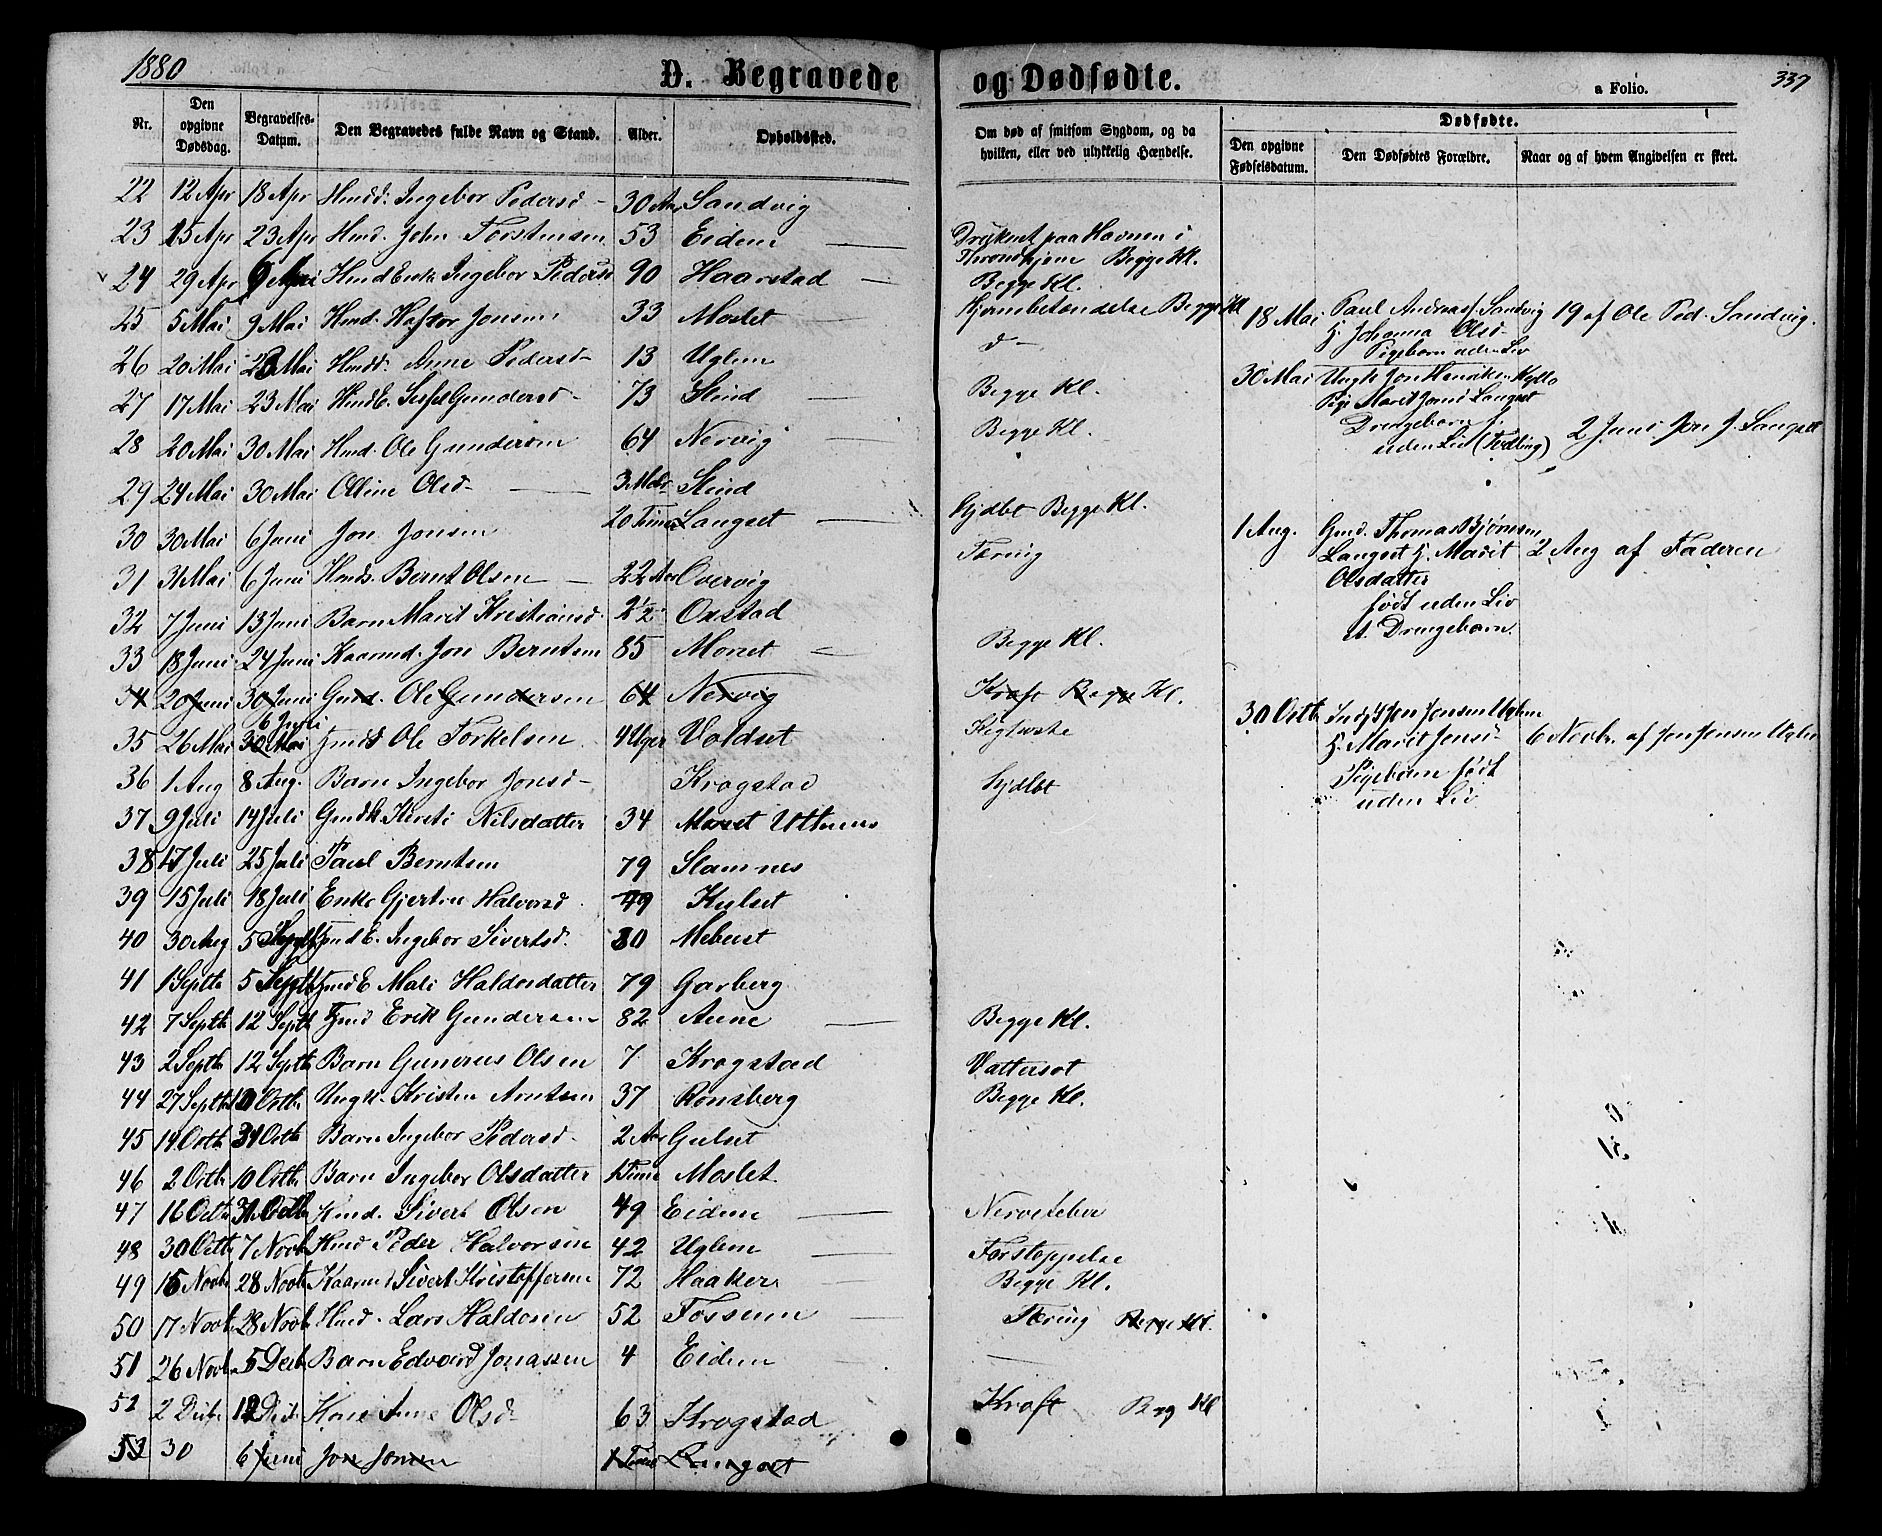 1880
D. Begravede og Dødfødte.
a Folio.
337
Nr.
Den opgivne Dødsdag.
Begravelses-Datum.
Den Begravedes fulde Navn og Stand.
Alder.
Opholdssted.
Om død af smitsom Sygdom, og da hvilken, eller ved ulykkelig Hændelse.
Dødfødte.
Den opgivne Fødselsdatum.
Den Dødfødtes Forældre.
Naar og af hvem Angivelsen er skeet.
22 12 Apr 18 Apr Ingebor Pedersd 30 Aar Sandvig
23 15 Apr 23 Apr John Torstensen 53 Eidem Druknet paa Havnen i
Throndhjem Begge Kl.
24 29 Apr 6 Mai Enke Ingebor Peders 90 Haarstad Begge Kl.
25 5 Mai 9 Mai Haftor Jonsen 33 Moslet Hjernebetændelse Begge Kl
26 20 Mai 23 Mai Anne Pedersd 13 Uglem d
27 17 Mai 23 Mai Gundersd 73 Stind Begge Kl.
28 20 Mai 30 Mai Ole Gundersen 64 Nervig Begge Kl.
29 24 Mai 30 Mai Olline Olsd 3 Stind
30 30 Mai 6 Juni Jon Jonsen 20 Timer Langset Gjdbt Begge Kl.
31 31 Mai 6 Juni Bernt Olsen 22 Aar Overvig Tæring
32 7 Juni 13 Juni Barn Marit Kristiansd 2 1/2 Oxstad
33 18 Juni 24 Juni Kaarmd. Jon Berntsen 85 Moset Begge Kl.
34 20 Juni 30 Juni Gmd. Ole Gundersen 64 Nervig Kræft Begge Kl.
6 Juni
35 26 Mai 30 Mai Ole Torkelsen 4 Uger Voldset Kighoste
36 1 Aug 8 Aug. Barn Ingebor Jonsd Krogstad Gjdbt
37 9 Juli 14 Juli Kirsti Nilsdatter 34 Moset
38 17 Juli 25 Juli Paul Berntsen 79 Slamnes
39 15 Juli 18 Juli Enke Gjertru Halvorsd 79 Kulset
40 30 Aug 5 Septb Gmd E. Ingebor Sivertsd. 80 Mebust
41 1 Septb 5 Septb Gmd E Mali Haldordatter 79 Garberg
42 7 Septb 12 Septb Gmd Erik Gundersen 82 Aune Begge Kl.
43 2 Septb 12 Septb Barn Gunerus Olsen 7 Krogstad Vattersot
44 27 Septb 10 Octb Ungk. Kristen Arntsen 37 Rønsberg Begge Kl.
45 14 Octb 31 Octb Barn Ingebor Pedersd 2 Aar Gulset
46 2 Octb 10 Octb Barn Ingebor Olsdatter 1 Time Moslet
47 16 Octb 31 Octb Sivert Olsen 49 Eidem Nervefeber
48 30 Octb 7 Novb Peder Halvorsen 42 Uglem Forstoppelse
49 15 Novb 28 Novb Kaarmd Sivert Kristoffersen 72 Haaker Begge Kl.
50 17 Novb 28 Novb Lars Haldorsen 52 Fossum Tæring Begge Kl.
51 26 Novb 5 Decb Barn Edvard Jonassen 4 Eidem
52 2 Decb 12 Decb Kone Anne Olsd 63 Krogstad Kræft Beg Kl
53 30 6 Juni Jon Jonsen 1 Time Langset
18 Mai Paul Andreas. Sandvig 19 af Ole Ped. Sandvig.
H. Johanna Olsd
Pigebarn uden Liv
30 Mai Ungk Jon Henriksen Kyllo
Pige Marit Jonsd Langset
Drengebarn
uden Liv (Tvilling) 2 Juni Jon J. Langset
1 Aug. Gmd. Thomas Bjørnsen
Langset H. Marit 2 Aug af Faderen
Olsdatter
født uden Liv
et Drengebarn.
30 Octb Indst Jon Jonsen Uglem
H. Marit Jensd 6 Novbr. af Jon Jonsen Uglem
Pigebarn født
uden Liv